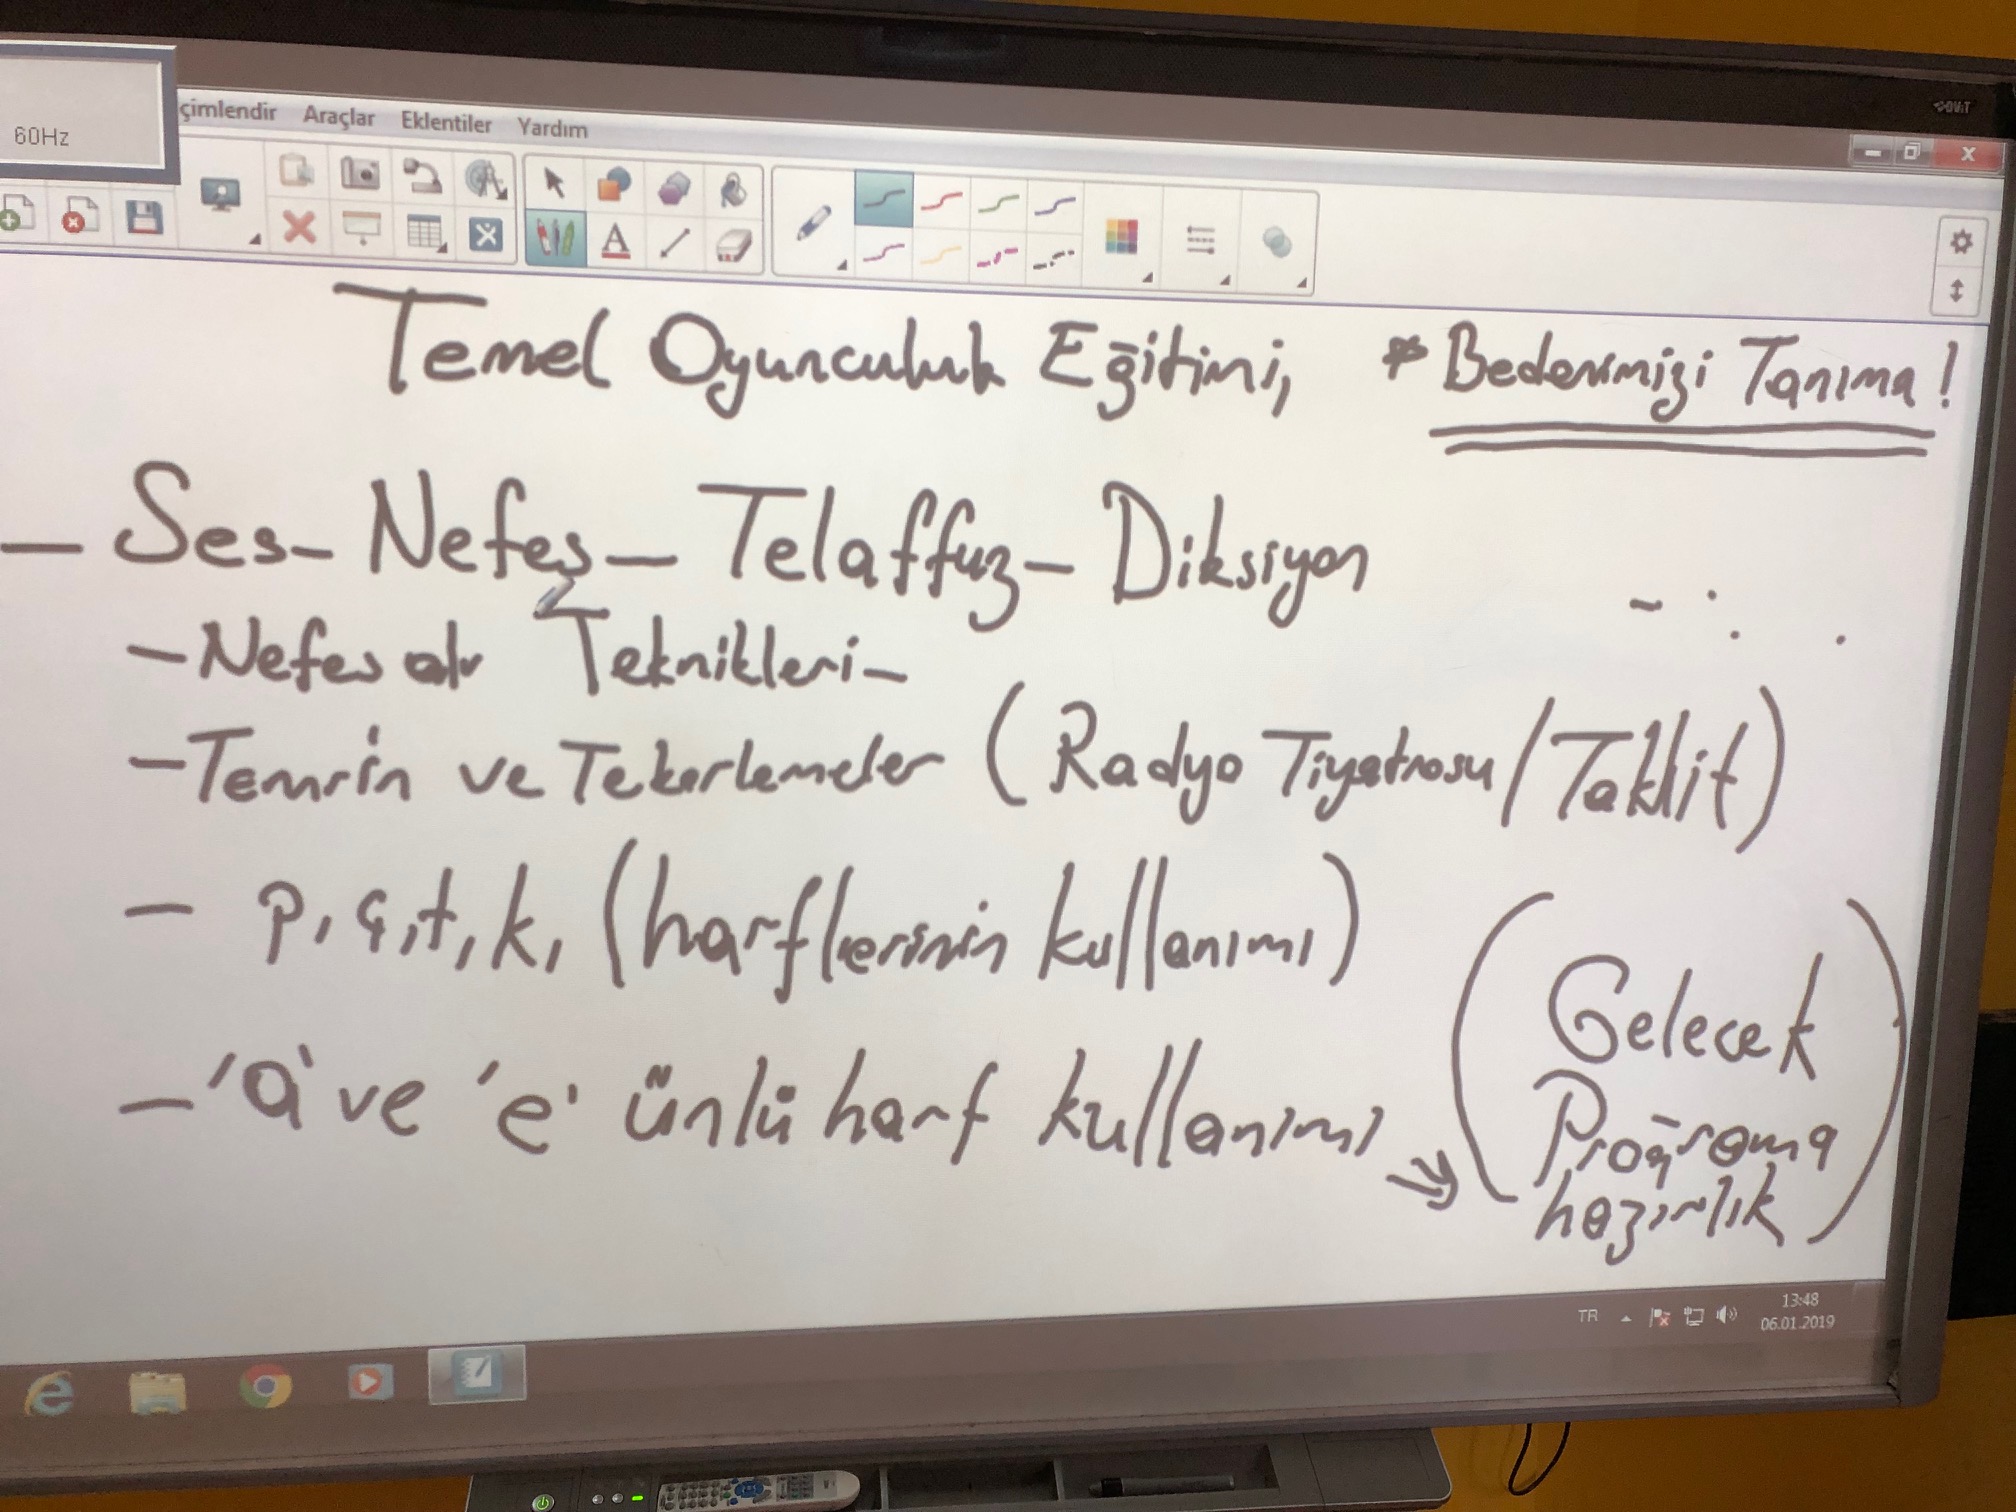 60Hz
çimlendir Araçlar Eklentiler Yardım
Temel Oyunculuk Eğitimi, * Bedenimizi Tanıma!
- Ses - Nefes - Telaffuz - Diksiyon
- Nefes alır Teknikleri -
- Temrin ve Tekerlemeler (Radyo Tiyatrosu / Taklit)
- p, ç, t, k, (harflerinin kullanımı)
- 'a' ve 'e' ünlü harf kullanımı
(Gelecek
Proğrama
hazırlık)
TR
13:48
06.01.2019